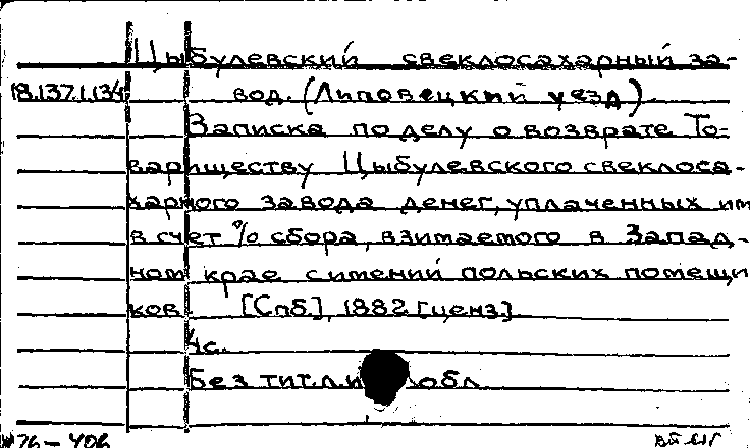 Цыбулевский свеклосахарный за-
18.137.1.134 вод. (Липовецкий уезд)
Записка по делу о возврате То-
вариществу Цыбулевского свеклоса-
харного завода денег, уплаченных им
в счет % сбора, взимаемого в Запад-
ном крае с имений польских помещи
ков [Спб], 1882 [ценз].
4с.
Без тит. л. и обл
76-406